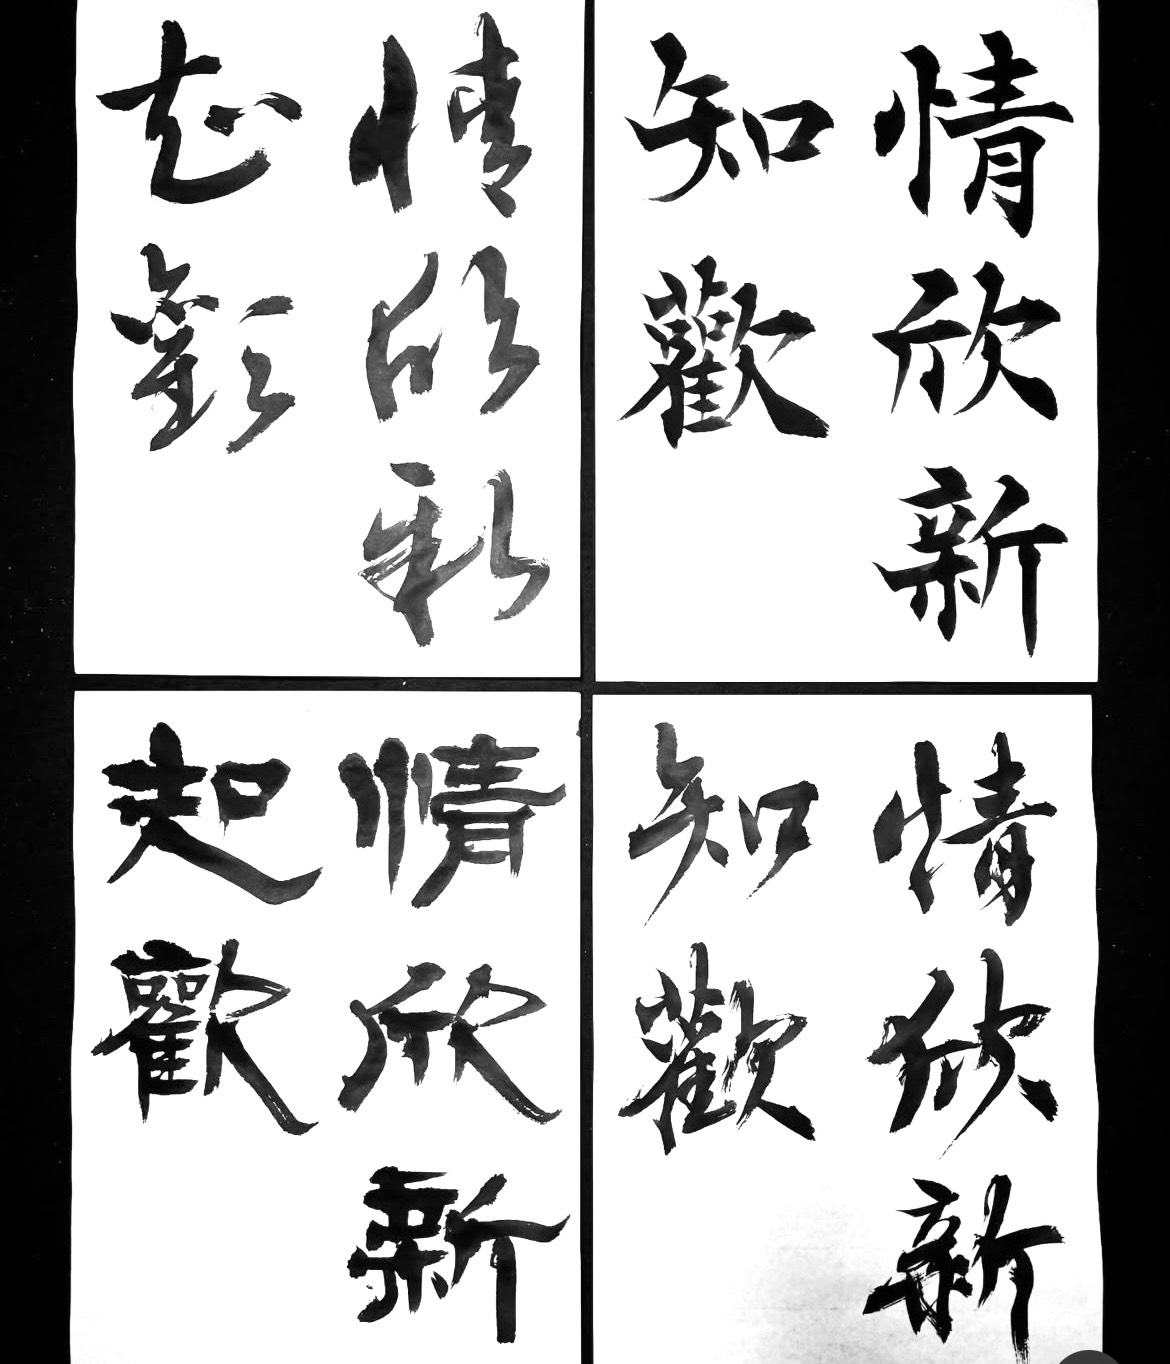 情欣新
知歡
情欣新
知歡
情欣新
知歡
情欣新
知歡